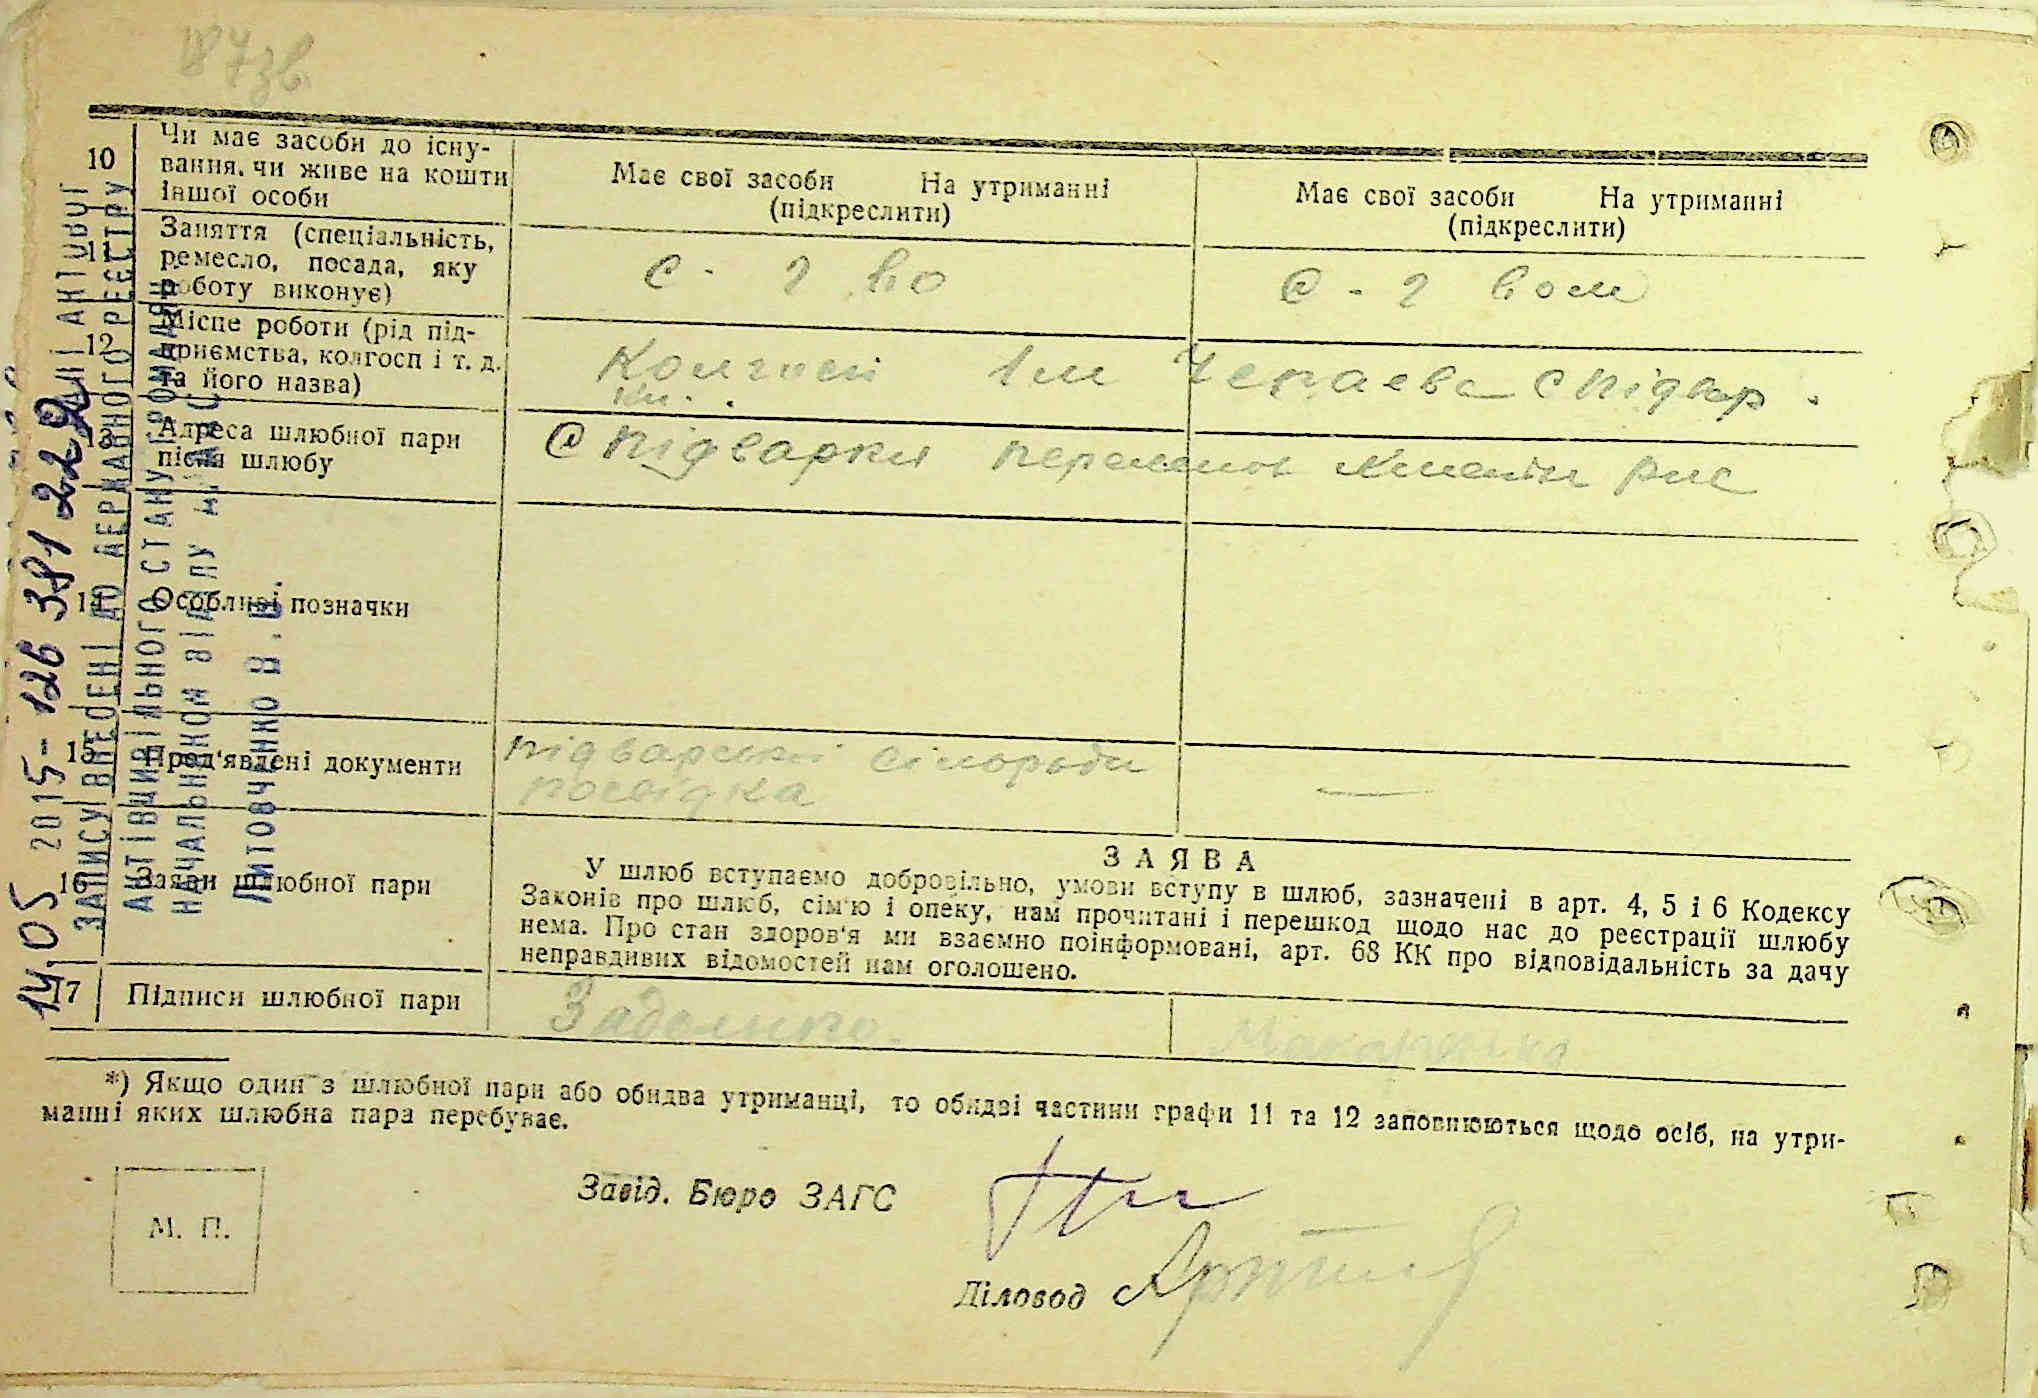 87зв
10
Чи має засоби до існу-
вання, чи живе на кошти
іншої особи
Має свої засоби На утриманні
(підкреслити)
Має свої засоби На утриманні
(підкреслити)
11
Заняття (спеціальність,
ремесло, посада, яку
роботу виконує)
С - г во
С - г вом
12
Місце роботи (рід під-
приємства, колгосп і т. д.
та його назва)
Колгосп Ім Чепаева с підвар.
13
Адреса шлюбної пари
після шлюбу
С підварки рис
14
Особливі позначки
15
Пред'явлені документи
підварської сільради
посвідка
—
16
Заяви шлюбної пари
ЗАЯВА
У шлюб вступаємо добровільно, умови вступу в шлюб, зазначені в арт. 4, 5 і 6 Кодексу
Законів про шлюб, сім'ю і опеку, нам прочитані і перешкод щодо нас до реєстрації шлюбу
нема. Про стан здоров'я ми взаємно поінформовані, арт. 68 КК про відповідальність за дачу
неправдивих відомостей нам оголошено.
17
Підписи шлюбної пари
Макаренко
*) Якщо один з шлюбної пари або обидва утриманці, то обидві частини графи 11 та 12 заповнюються щодо осіб, на утри-
манні яких шлюбна пара перебуває.
Завід. Бюро ЗАГС
М. П.
Діловод
14.05 2015 - 126 381 222
АКТОВОГО
ЗАПИСУ ВНЕСЕНІ ДО ДЕРЖАВНОГО РЕЄСТРУ
АКТІВ ЦИВІЛЬНОГО СТАНУ ГРОМАДЯН
НАЧАЛЬНИКОМ ВІДДІЛУ
Литовченко В.В.